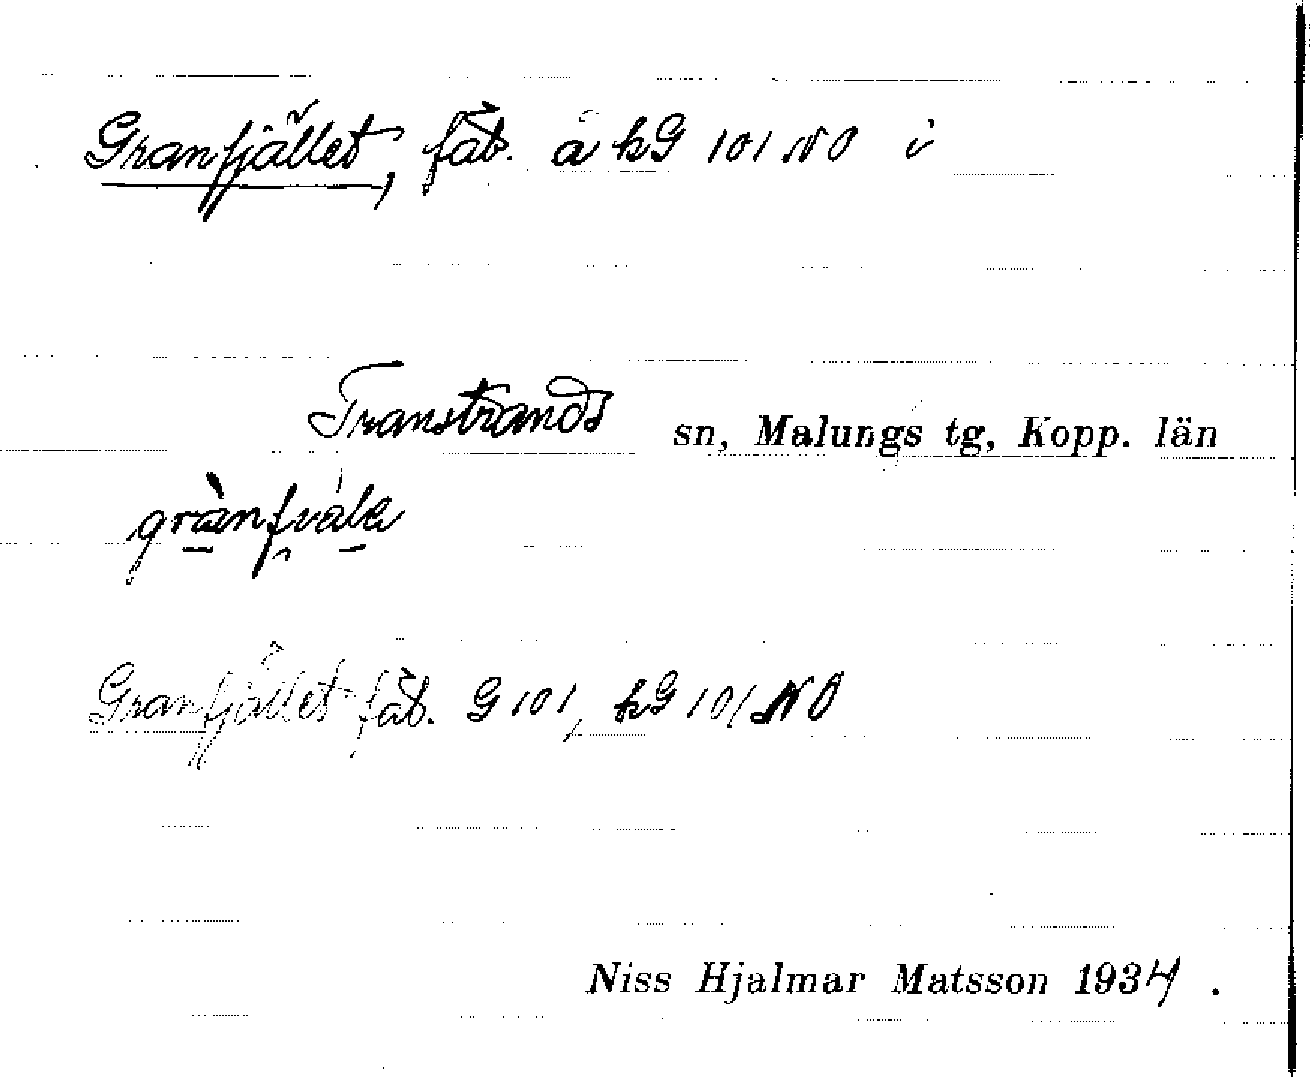 Granfjället, fäb. å kG 101 NO i
Transtrands sn, Malungs tg, Kopp. län
Granfjället fäb. G 101, kG 101 NO
Niss Hjalmar Matsson 1934.